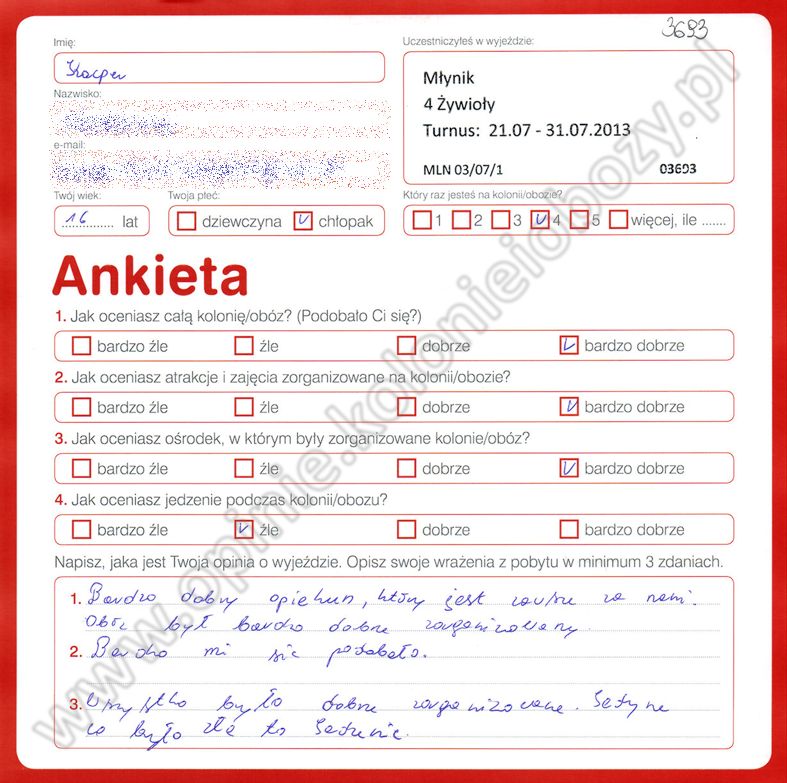 3693
Imię:
Uczestniczyłeś w wyjeździe:
Kacper
Młynik
4 Żywioły
Turnus: 21.07 - 31.07.2013
MLN 03/07/1 03693
Nazwisko:
e-mail:
Twój wiek:
Twoja płeć:
Który raz jesteś na kolonii/obozie?
16 lat
dziewczyna v chłopak
1 2 3 v 4 5 więcej, ile .......
Ankieta
1. Jak oceniasz całą kolonię/obóz? (Podobało Ci się?)
bardzo źle źle dobrze v bardzo dobrze
2. Jak oceniasz atrakcje i zajęcia zorganizowane na kolonii/obozie?
bardzo źle źle dobrze v bardzo dobrze
3. Jak oceniasz ośrodek, w którym były zorganizowane kolonie/obóz?
bardzo źle źle dobrze v bardzo dobrze
4. Jak oceniasz jedzenie podczas kolonii/obozu?
bardzo źle v źle dobrze bardzo dobrze
Napisz, jaka jest Twoja opinia o wyjeździe. Opisz swoje wrażenia z pobytu w minimum 3 zdaniach.
1. Bardzo dobry opiekun, który jest zawsze za nami.
Obóz był bardzo dobrze zorganizowany.
2. Bardzo mi się podobało.
3. Wszystko było dobrze zorganizowane. Jedyne
co było złe to jedzenie.
www.opinie.kolonieiobozy.pl